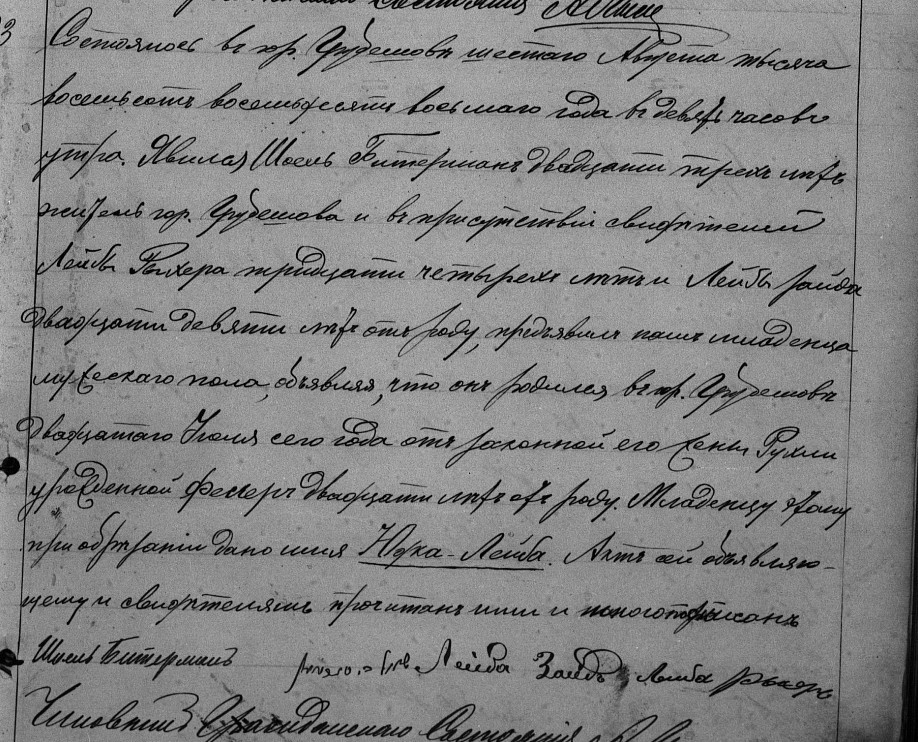 Состоялось въ гор. Грубешовѣ шестаго Августа тысяча
восемьсотъ восемьдесятъ восьмаго года въ девять часовъ
утра. Явился Шоель Битерманъ двадцати трехъ лѣтъ
житель гор. Грубешова и въ присутствіи свидѣтелей
Лейбы Рыхера тридцати четырехъ лѣтъ и Лейбы Зайда
двадцати девяти лѣтъ отъ роду, предъявилъ намъ младенца
мужескаго пола, объявляя, что онъ родился въ гор. Грубешовѣ
двадцатаго Іюля сего года отъ законной его жены Рухли
урожденной Фекеръ двадцати лѣтъ отъ роду. Младенцу этому
при обрѣзаніи дано имя Юдка-Лейба. Актъ сей объявляю-
щему и свидѣтелямъ прочитанъ ими и подписанъ
Шоель Битерманъ Лейба Зайдъ, Лейба Рыхеръ
Чиновникъ Гражданскаго Состоянія